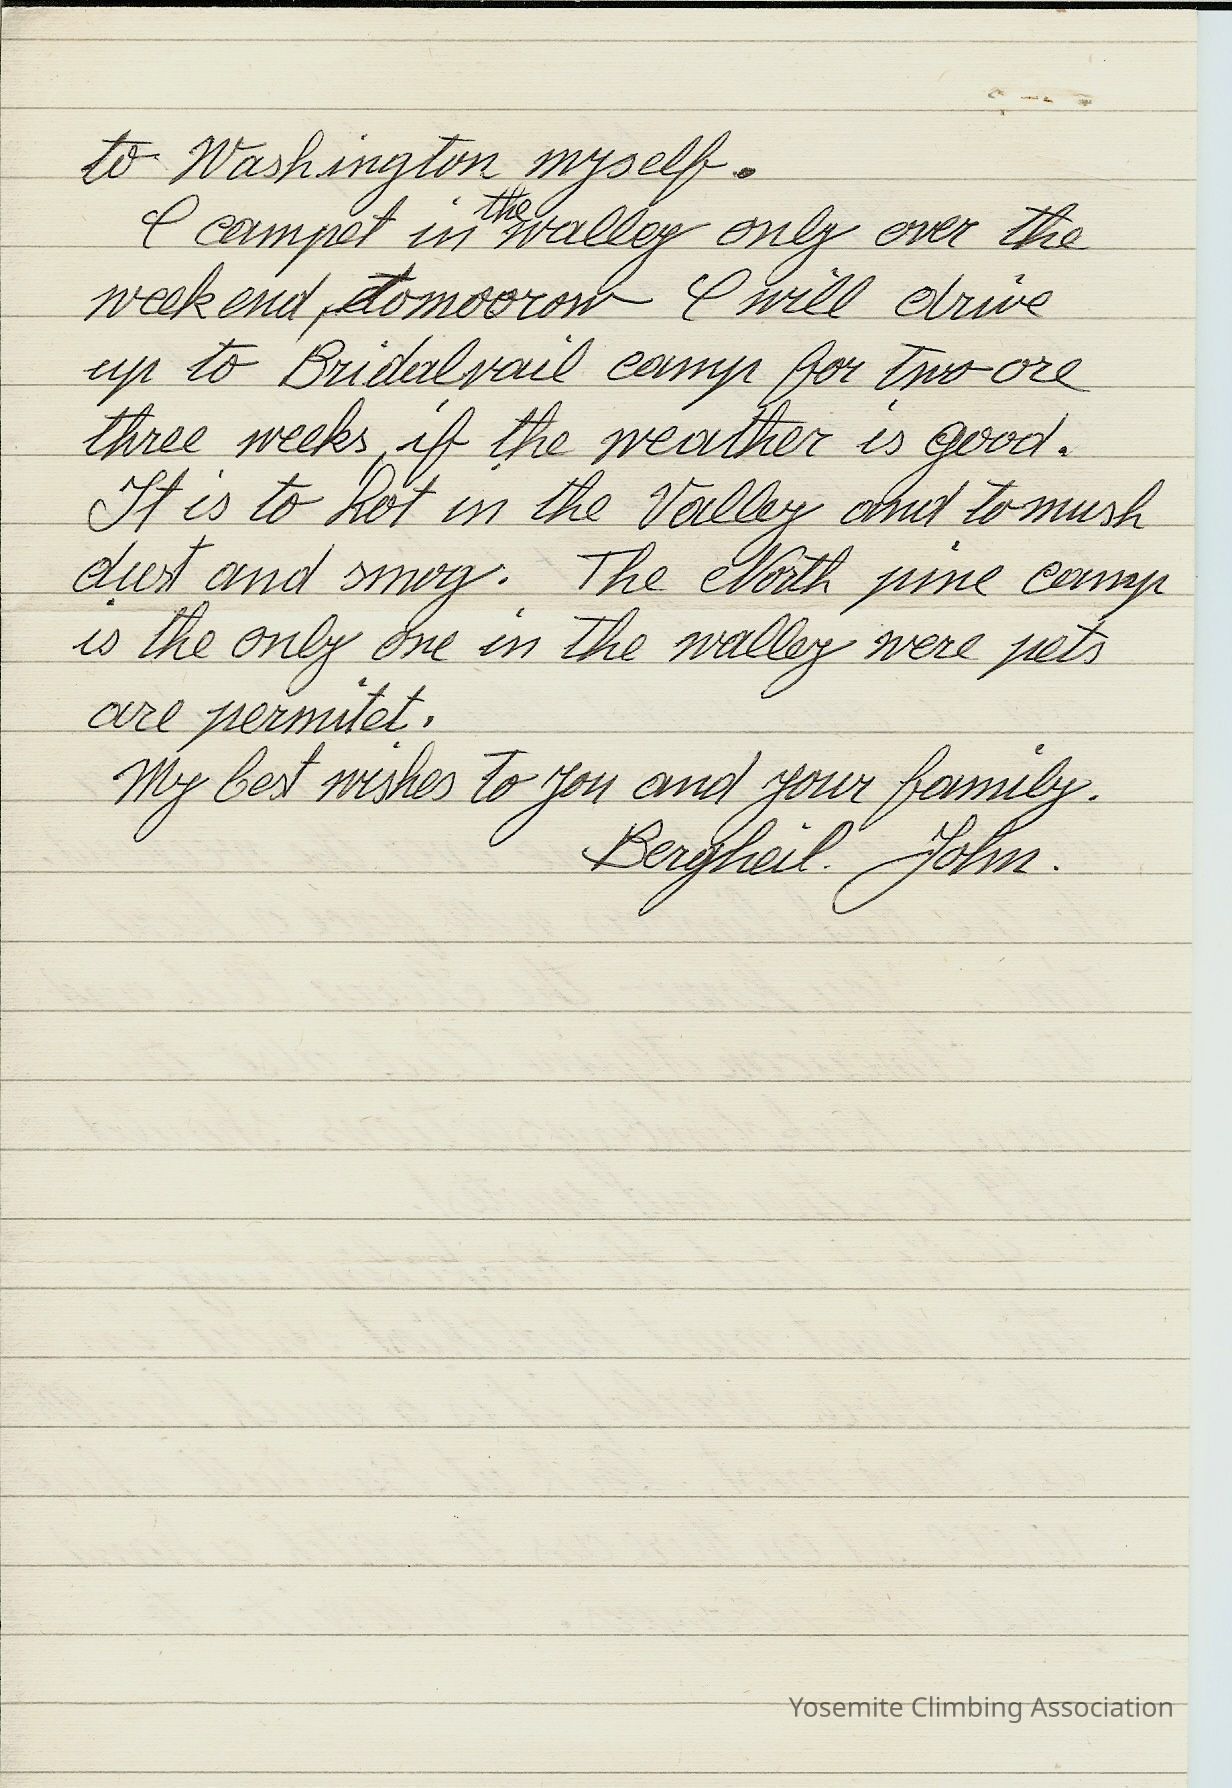 to Washington myself.
I campet in the walley only over the
weekend, tomoorow I will drive
up to Bridalvail camp for two ore
three weeks, if the weather is good.
It is to hot in the Valley and to mush
dust and smog. The North pine camp
is the only one in the walley were pets
are permitet.
My best wishes to you and your family.
Bergheil. John.
Yosemite Climbing Association